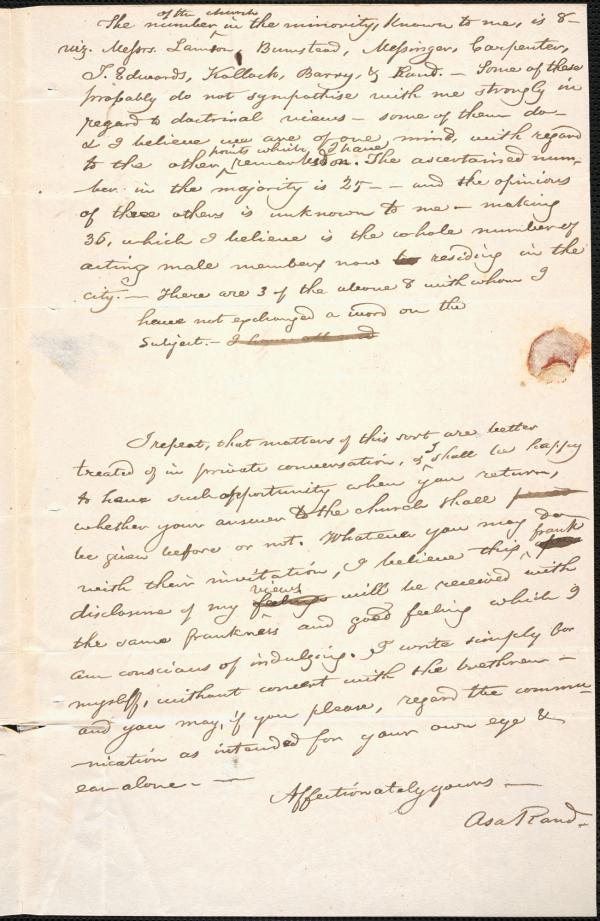 of the church
The number in the minority, known to me, is 8 -
viz. Messrs. Lamson, Bumstead, Messinger, Carpenter,
T. Edwards, Kallock, Barry, & Rand. - Some of these
probably do not sympathise with me strongly in
regard to doctrinal views - some of them do -
& I believe we are of one mind, with regard
points which I have
to the other remarked on. The ascertained num-
ber in the majority is 25 - - and the opinions
of three others is unknown to me - making
36, which I believe is the whole number of
acting male members now to residing in the
city. - There are 3 of the above 8 with whom I
have not exchanged a word on the
subject. -
I repeat, that matters of this sort are better
treated of in private conversation, & I shall be happy
to have such opportunity when you return,
whether your answer to the church shall
be given before or not. Whatever you may do
with their invitation, I believe this frank
disclosure of my views will be received with
the same frankness and good feeling which I
am conscious of indulging. I write simply for
myself, without concert with the brethren -
and you may, if you please, regard the commu-
-nication as intended for your own eye &
ear alone. - -
Affectionately yours -
Asa Rand -